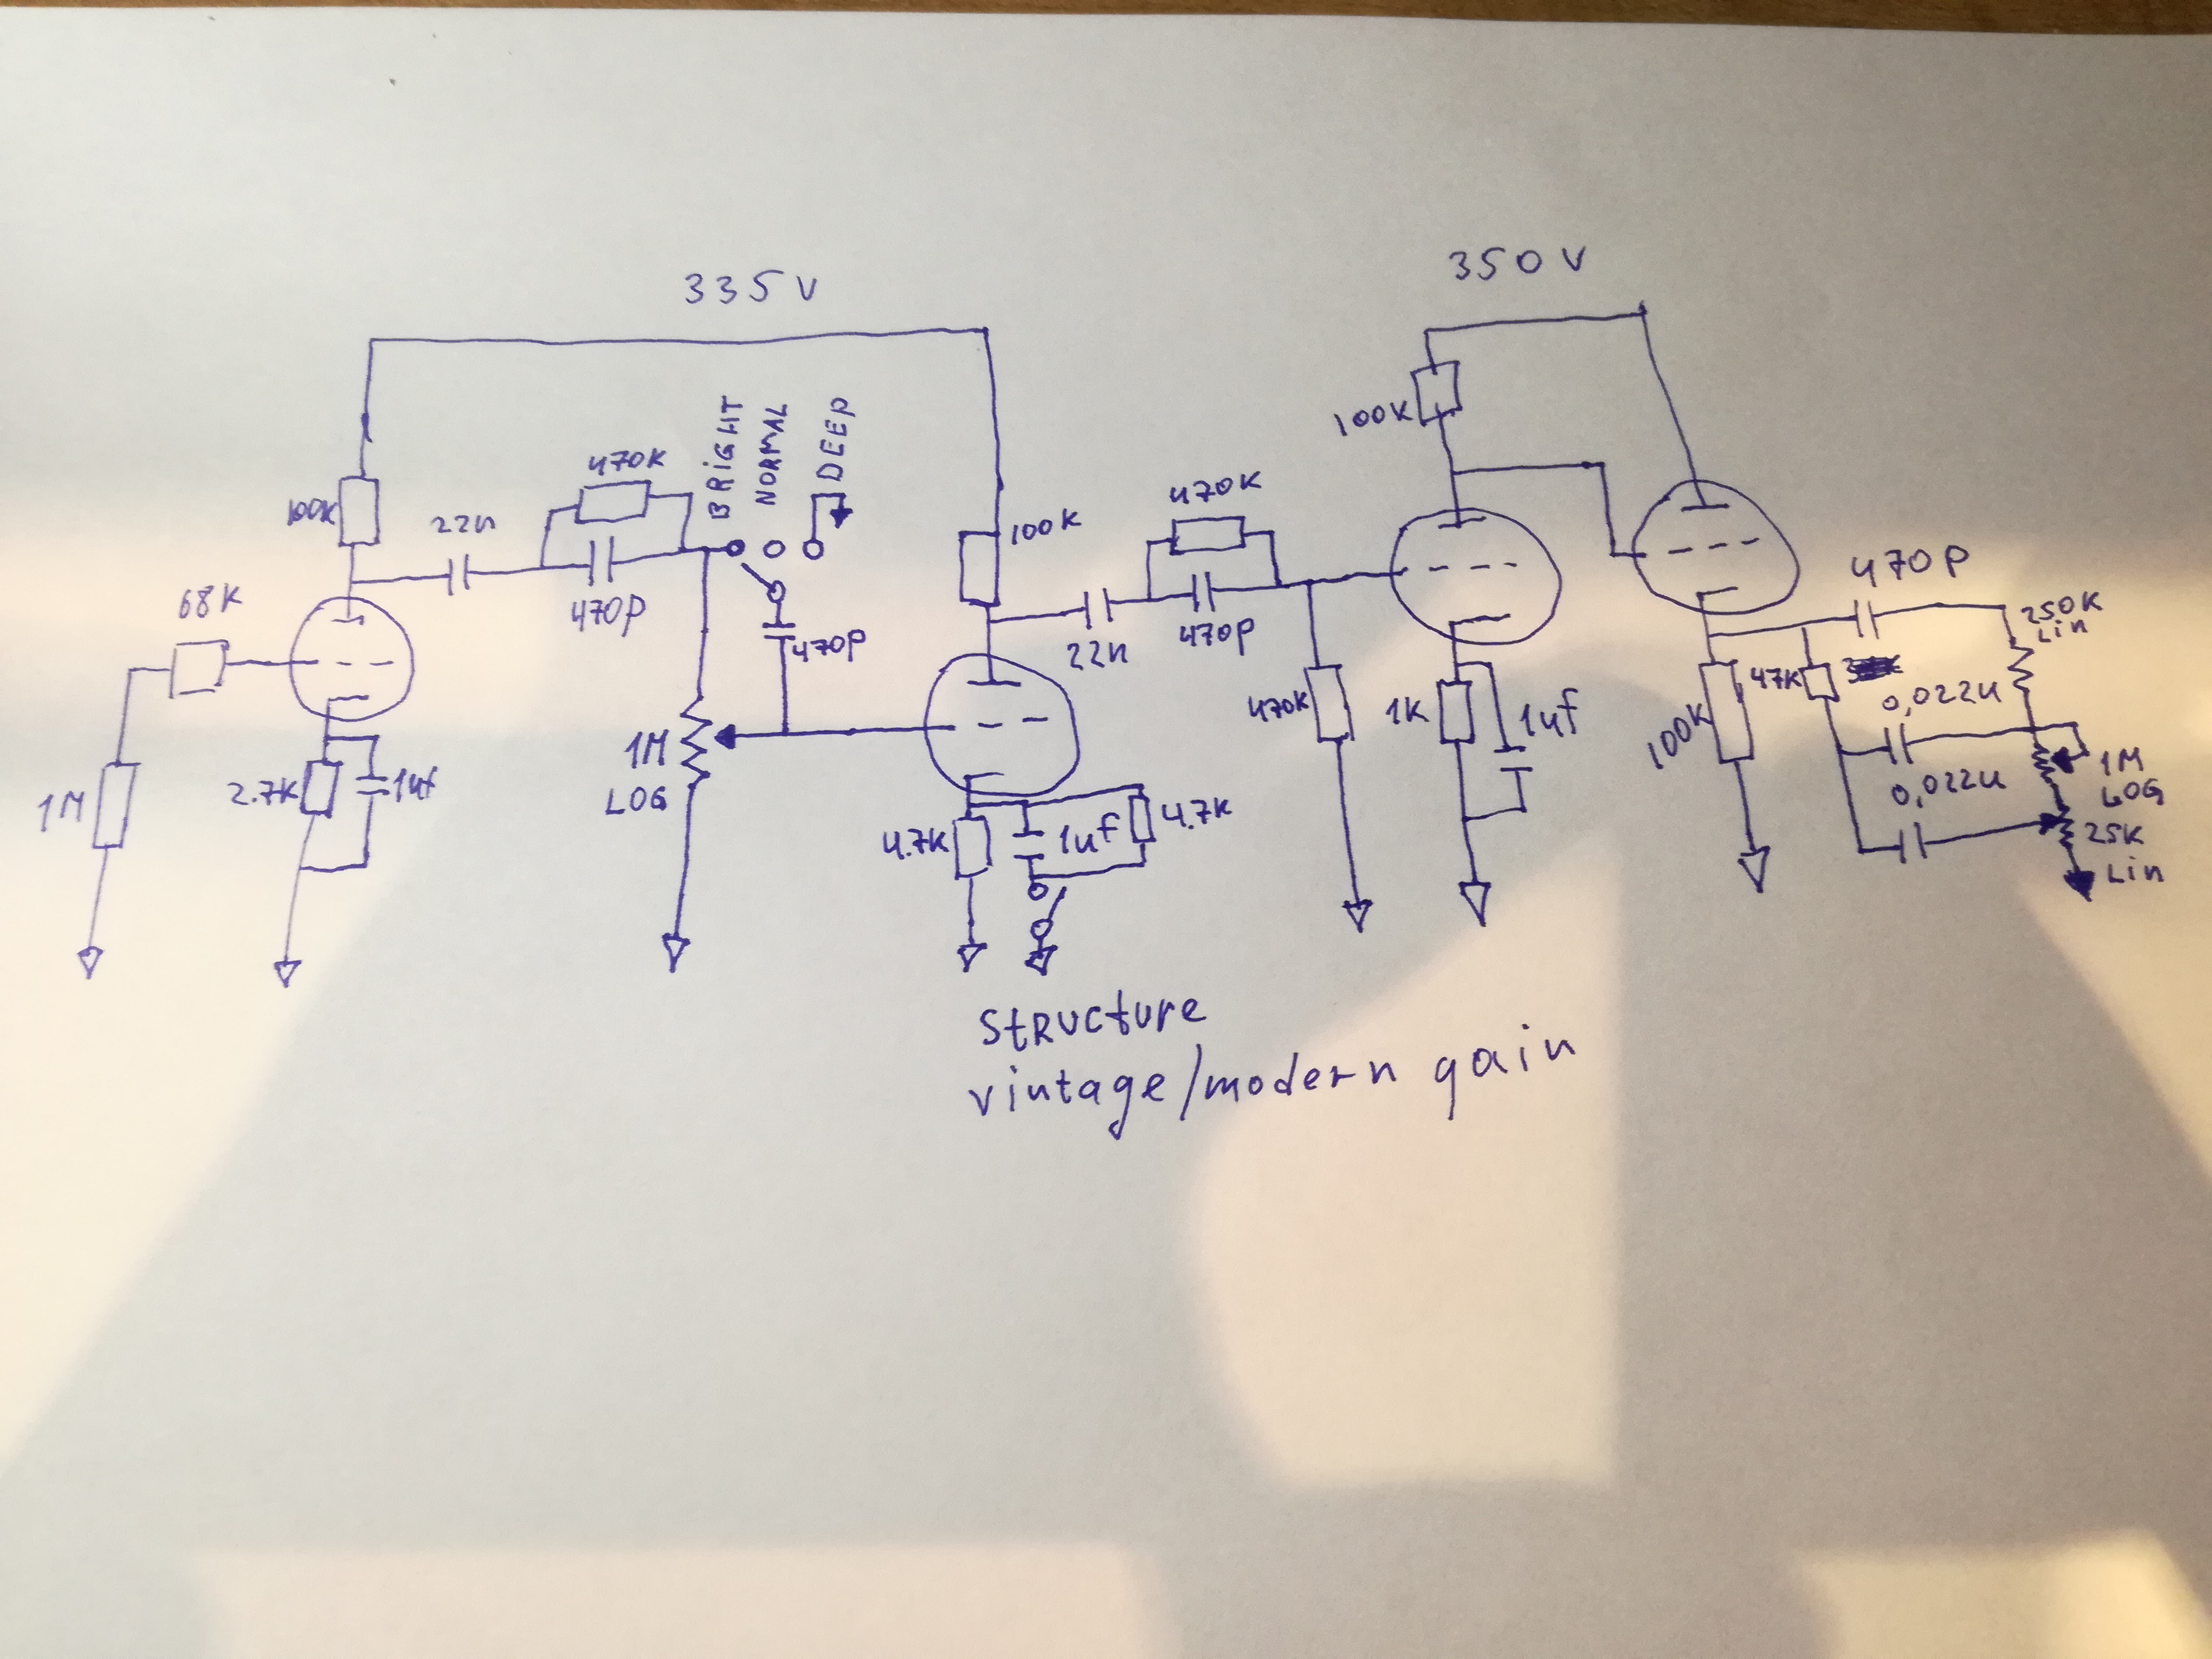 335V
350V
BRIGHT
NORMAL
DEEP
100K
470K
22n
470p
68K
1M
2.7K
1uf
470p
1M
LOG
100K
470K
22n
470p
4.7K
1uf
4.7K
100K
470K
1K
1uf
470p
250K
Lin
47K
100K
0,022u
1M
LOG
0,022u
25K
Lin
StRUCture
vintage/modern gain